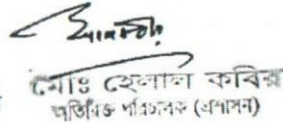 মোঃ হেলাল কবির
অতিরিক্ত পরিচালক (প্রশাসন)